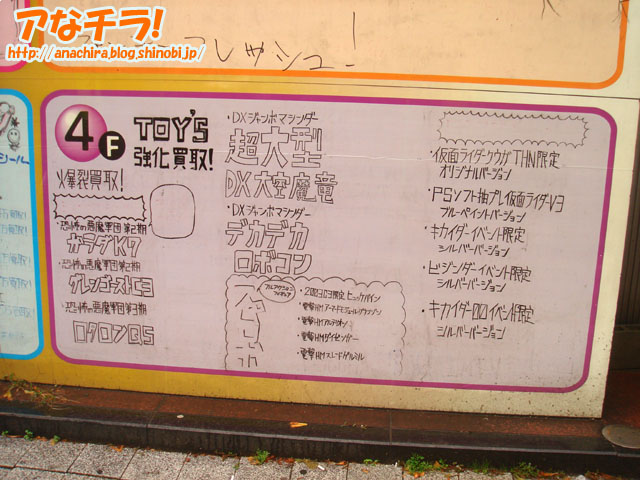 アなチラ!
http://anachira.blog.shinobi.jp/
フレッシュ!
シール
4F
TOY'S
強化買取!
爆裂買取!
・恐怖の悪魔軍団第2期
カラダK7
・恐怖の悪魔軍団第2期
グレンゴーストC3
・恐怖の悪魔軍団第3期
・DXジャンボマシンダー
超大型
DX大空魔竜
・DXジャンボマシンダー
デカデカ
ロボコン
フルアクションフィギュア
・電撃HM
・電撃HMダイゼンガー
・電撃HMスレードゲルミル
・仮面ライダークウガTHN限定
オリジナルバージョン
・PSソフト抽プレ仮面ライダーV3
ブルーペイントバージョン
・キカイダーイベント限定
シルバーバージョン
・ビジンダーイベント限定
シルバーバージョン
・キカイダー00イベント限定
シルバーバージョン